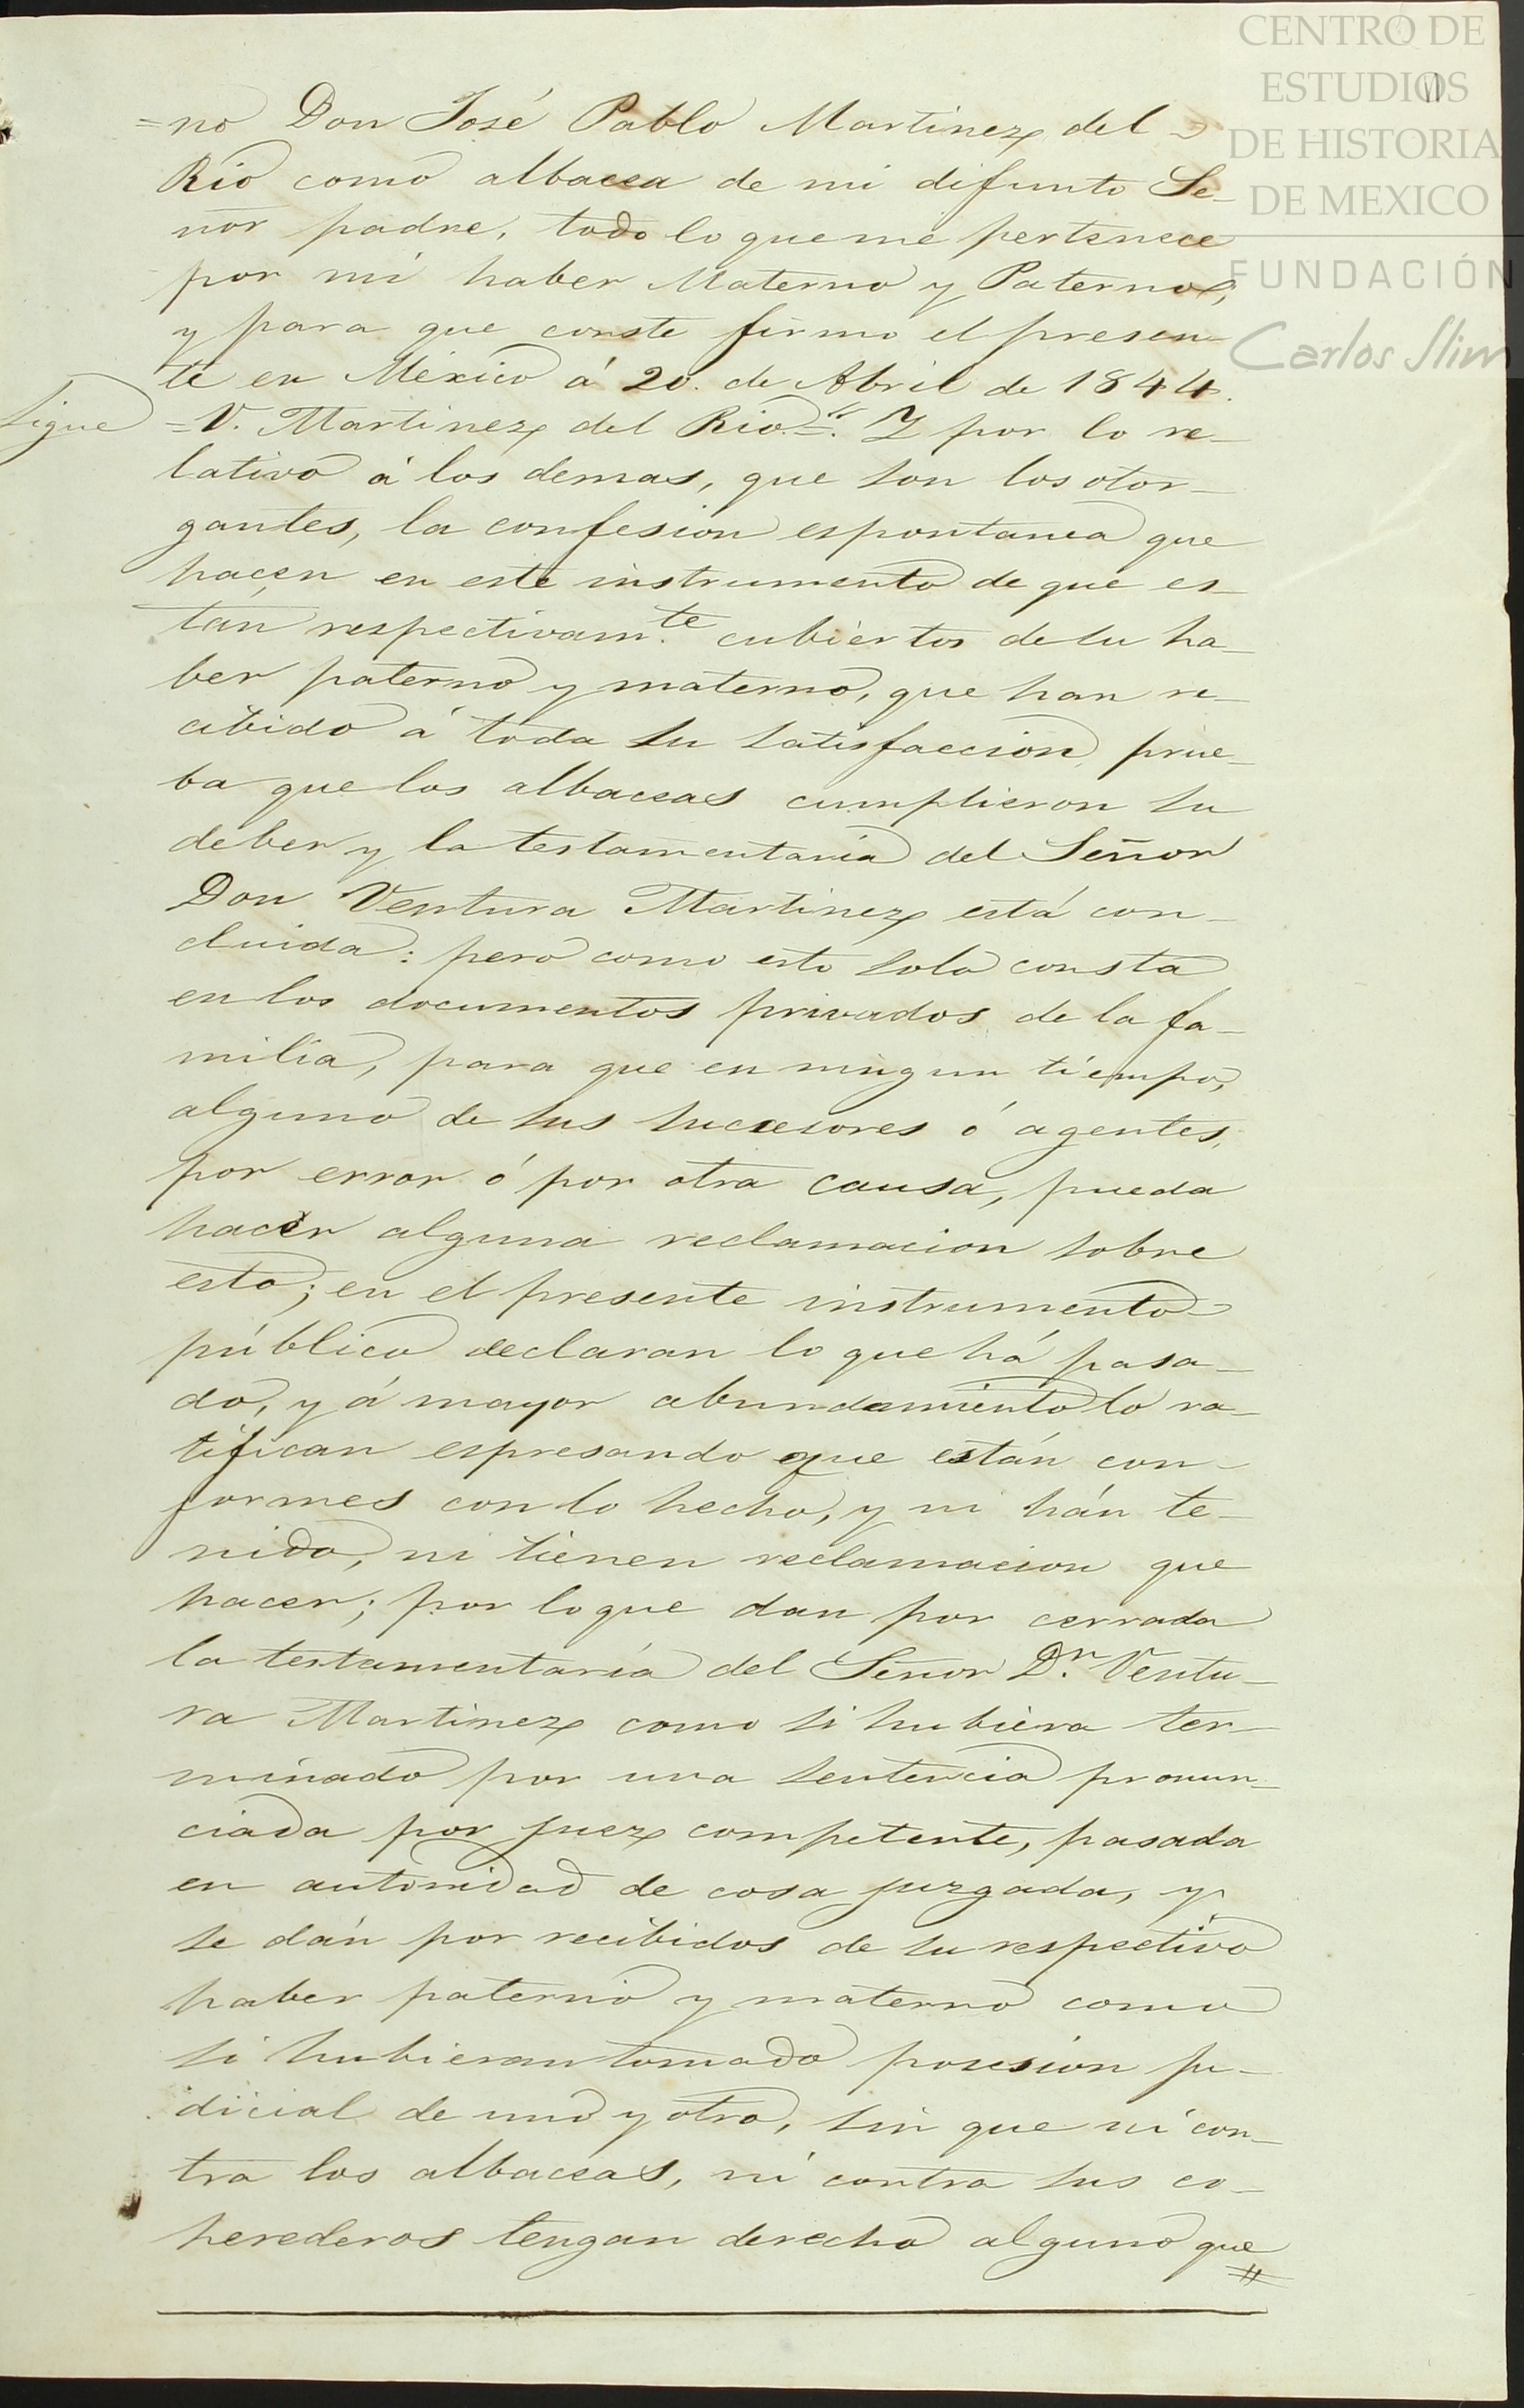 CENTRO DE
ESTUDIOS
DE HISTORIA
DE MEXICO
FUNDACIÓN
Carlos Slim
=no Don José Pablo Martinez del
Rio como albacea de mi difunto Se-
nor padre, todo lo que me pertenece
por mi haber Materno y Paterno,
y para que conste firmo el presen-
te en México á 20. de Abril de 1844.
Sigue
=V. Martinez del Rio.=" Y por lo re-
lativo á los demas, que son los otor-
gantes, la confesion espontanea que
hacen en este instrumento de que es-
tan respectivam.te cubiertos de su ha-
ber paterno y materno, que han re-
cibido á toda su satisfaccion, prue-
ba que los albaceas cumplieron su
deber y la testamentaria del Señor
Don Ventura Martinez está con-
cluida: pero como esto solo consta
en los documentos privados de la fa-
milia, para que en ningun tiempo,
alguno de sus succesores ó agentes,
por error ó por otra causa, pueda
hacer alguna reclamacion sobre
esto; en el presente instrumento
público declaran lo que há pasa-
do, y á mayor abundamiento lo ra-
tifican espresando que están con-
formes con lo hecho, y ni hán te-
nido, ni tienen reclamacion que
hacer; por lo que dan por cerrada
la testamentaría del Señor D.n Ventu-
ra Martinez como si hubiera ter-
minado por una sentencia pronun-
ciada por juez competente, pasada
en autoridad de cosa juzgada, y
se dán por recibidos de su respectivo
haber paterno y materno como
si hubieran tomado posesion ju-
dicial de uno y otro, sin que ni con-
tra los albaceas, ni contra sus co-
herederos tengan derecho alguno que